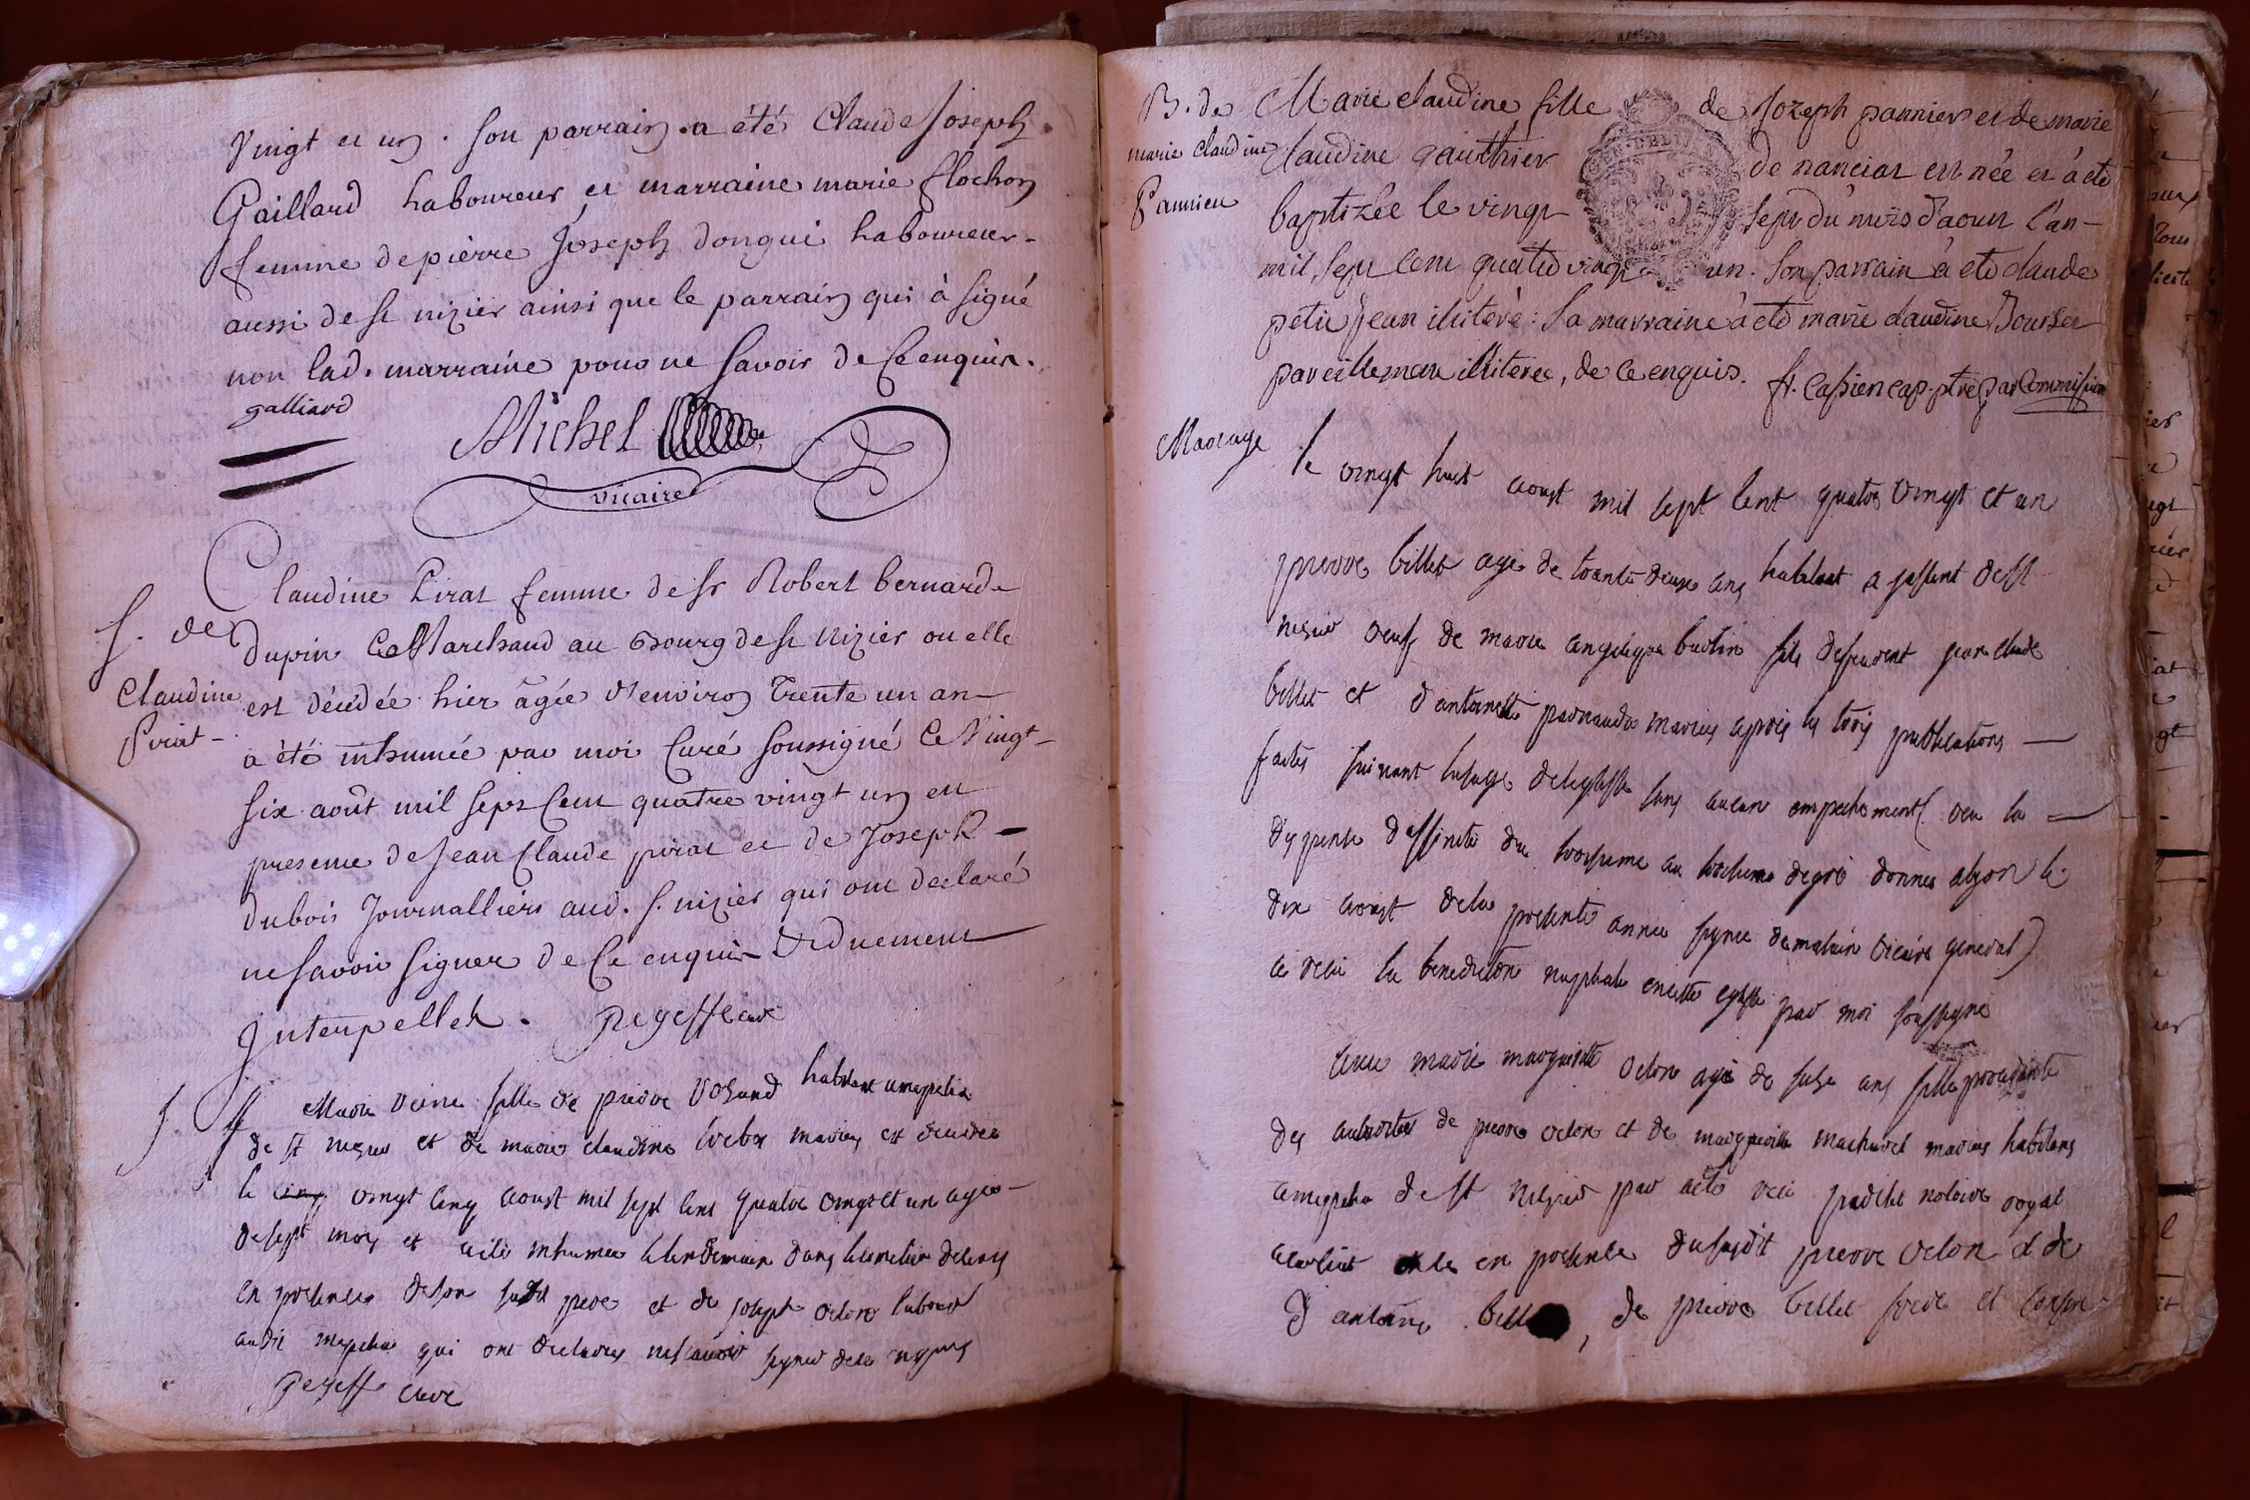 Vingt et un. son parrain a été Claude Joseph
Gaillard laboureur et marraine marie flochon
femme de pierre Joseph dongui laboureur
aussi de st nizier ainsi que le parrain qui à signé
non lad. marraine pour ne savoir de ce enquise.
galliard
Michel
vicaire
Claudine Pirat femme de sr Robert bernard
S. de
Dupin Marchand au Bourg de st Nizier ou elle
Claudine
est décédée hier âgée d'environ Trente un an
Pirat
a été inhumée par moi Curé soussigné Ce Vingt
six août mil sept Cent quatre vingt un en
presence de Jean Claude pirat et de Joseph
dubois Journalliers aud. s. nizier qui ont declaré
ne savoir signer de Ce enquis et duement
Interpellés. curé
S. Marie fille de pierre habitant
de st nizier et de marie claudine mariés est decedée
le vingt cinq aoust mil sept cent quatre vingt et un agée
de sept mois et a été inhumée le lendemain dans le cimetiere
en presence de son susdit pere et de joseph velon laboureur
audit qui ont declarés ne savoir signer de ce
curé
B. de
marie claudine
Pannier
Marie claudine fille de Jozeph pannier et de marie
claudine gauthier de nanciat est née et à eté
baptizée le vingt sept du mois d'aout l'an
mil sept cent quatre vingt un. son parrain à eté claude
petit Jean illitéré: sa marraine à eté marie claudine
pareillement illiterée, de ce enquis. fr. Cassien cap. ptre par Commission
Mariage
le vingt huit aoust mil sept cent quatre vingt et un
pierre billet agé de trante deux ans habitant a present de st
nizier veuf de marie angelique fils de jean claude
billet et d'antoinette mariés après les trois publications
faites suivant l'usage de l'eglise sans aucun empechement (veu la
dispense d'affinité du troisieme au troisieme degré donnée alyon le
dix aoust de la presente année signée vicaire general)
a receu la benediction nuptiale en cette eglise par moi soussigné
avec marie marguerite velon agée de seize ans fille procedante
des autorités de pierre velon et de marguerite mariés habitans
de st nizier par acte receu notaire royal
en presence du susdit pierre velon et de
d'antoine billet, de pierre billet frere et